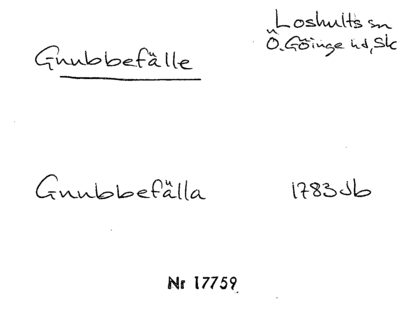 Loshults sn
Gnubbefälle
Ö. Göinge hd, Sk
Gnubbefälla 1783 Jb
Nr 17759